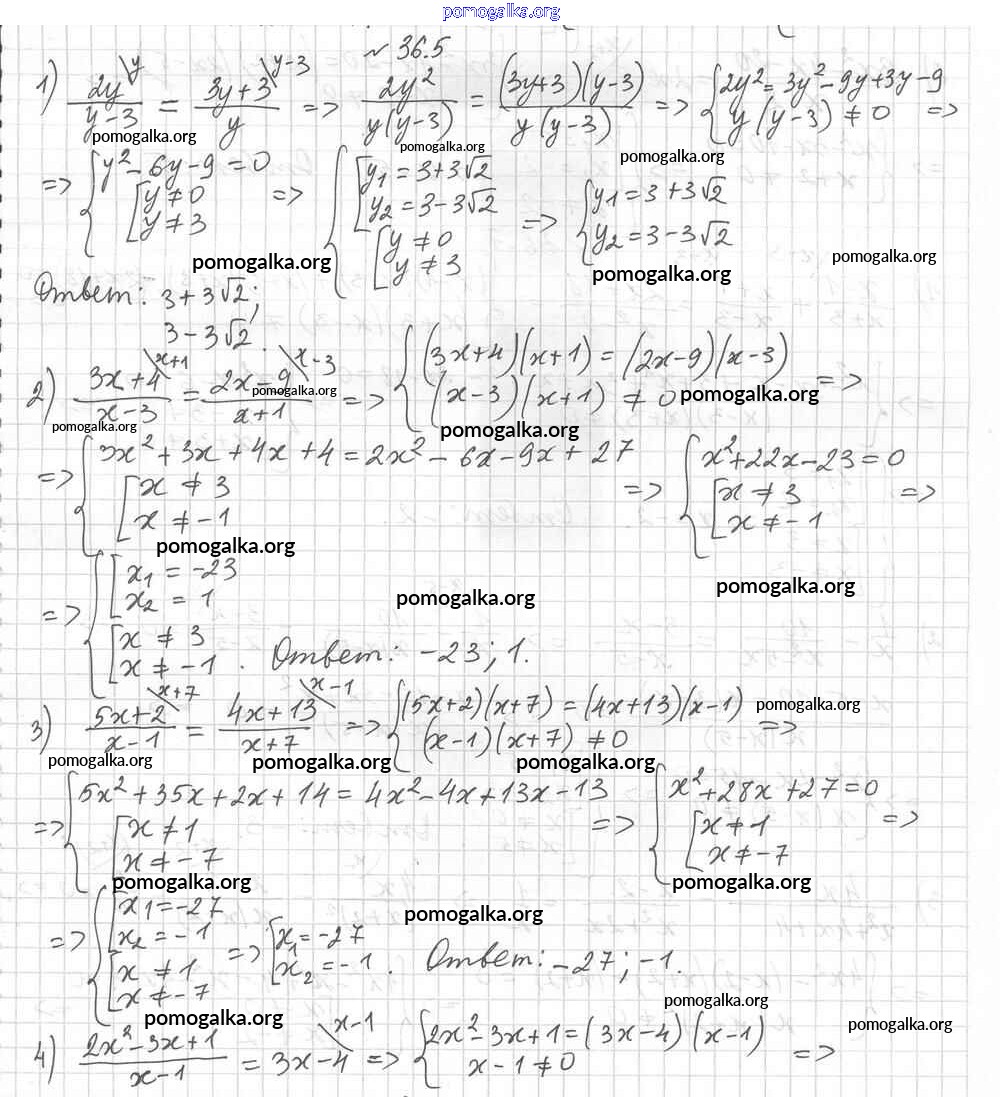 pomogalka.org
№ 36.5
1) 2y\y / y-3 = 3y+3\y-3 / y => 2y² / y(y-3) = (3y+3)(y-3) / y(y-3) => { 2y² = 3y² - 9y + 3y - 9
y(y-3) ≠ 0 =>
pomogalka.org pomogalka.org pomogalka.org
=> { y² - 6y - 9 = 0
[ y ≠ 0
y ≠ 3
=> { [ y₁ = 3+3√2
y₂ = 3-3√2
[ y ≠ 0
y ≠ 3
=> { y₁ = 3+3√2
y₂ = 3-3√2
pomogalka.org pomogalka.org pomogalka.org
Ответ: 3+3√2;
3-3√2.
2) 3x+4\x+1 / x-3 = 2x-9\x-3 / x+1 => { (3x+4)(x+1) = (2x-9)(x-3)
(x-3)(x+1) ≠ 0 =>
pomogalka.org pomogalka.org pomogalka.org pomogalka.org
=> { 3x² + 3x + 4x + 4 = 2x² - 6x - 9x + 27
[ x ≠ 3
x ≠ -1
=> { x² + 22x - 23 = 0
[ x ≠ 3
x ≠ -1 =>
pomogalka.org pomogalka.org pomogalka.org
=> { [ x₁ = -23
x₂ = 1
[ x ≠ 3
x ≠ -1. Ответ: -23; 1.
3) 5x+2\x+7 / x-1 = 4x+13\x-1 / x+7 => { (5x+2)(x+7) = (4x+13)(x-1)
(x-1)(x+7) ≠ 0 =>
pomogalka.org pomogalka.org pomogalka.org pomogalka.org
=> { 5x² + 35x + 2x + 14 = 4x² - 4x + 13x - 13
[ x ≠ 1
x ≠ -7
=> { x² + 28x + 27 = 0
[ x ≠ 1
x ≠ -7 =>
pomogalka.org pomogalka.org pomogalka.org
=> { [ x₁ = -27
x₂ = -1
[ x ≠ 1
x ≠ -7
=> [ x₁ = -27
x₂ = -1. Ответ: -27; -1.
pomogalka.org pomogalka.org pomogalka.org
4) 2x² - 3x + 1 / x-1 = 3x-4\x-1 => { 2x² - 3x + 1 = (3x-4)(x-1)
x - 1 ≠ 0 =>